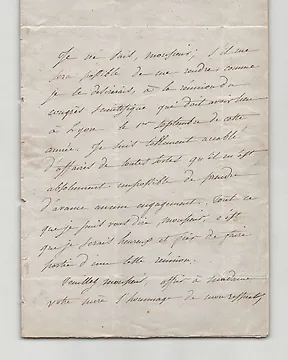 Je ne sais, monsieur, s'il me
sera possible de me rendre, comme
je le désirerais, à la réunion du
congrès scientifique qui doit avoir lieu
à Lyon le 1er septembre de cette
année. Je suis tellement accablé
d'affaires de toutes sortes qu'il m'est
absolument impossible de prendre
d'avance aucun engagement. Tout ce
que je puis vous dire, monsieur, c'est
que je serais heureux et fier de faire
partie d'une telle réunion.
Veuillez, monsieur, offrir à madame
votre mère l'hommage de mon respect